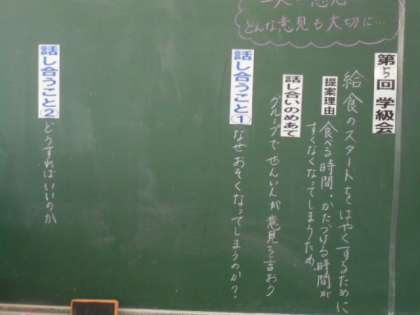 どんな意見も大切に…
第5回 学級会
給食のスタートをはやくするために
提案理由
食べる時間、かたづける時間が
すくなくなってしまうため
話し合いのめあて
グループでぜんいんが意見を言おう
話し合うこと①
なぜおそくなってしまうのか?
話し合うこと2
どうすればいいのか